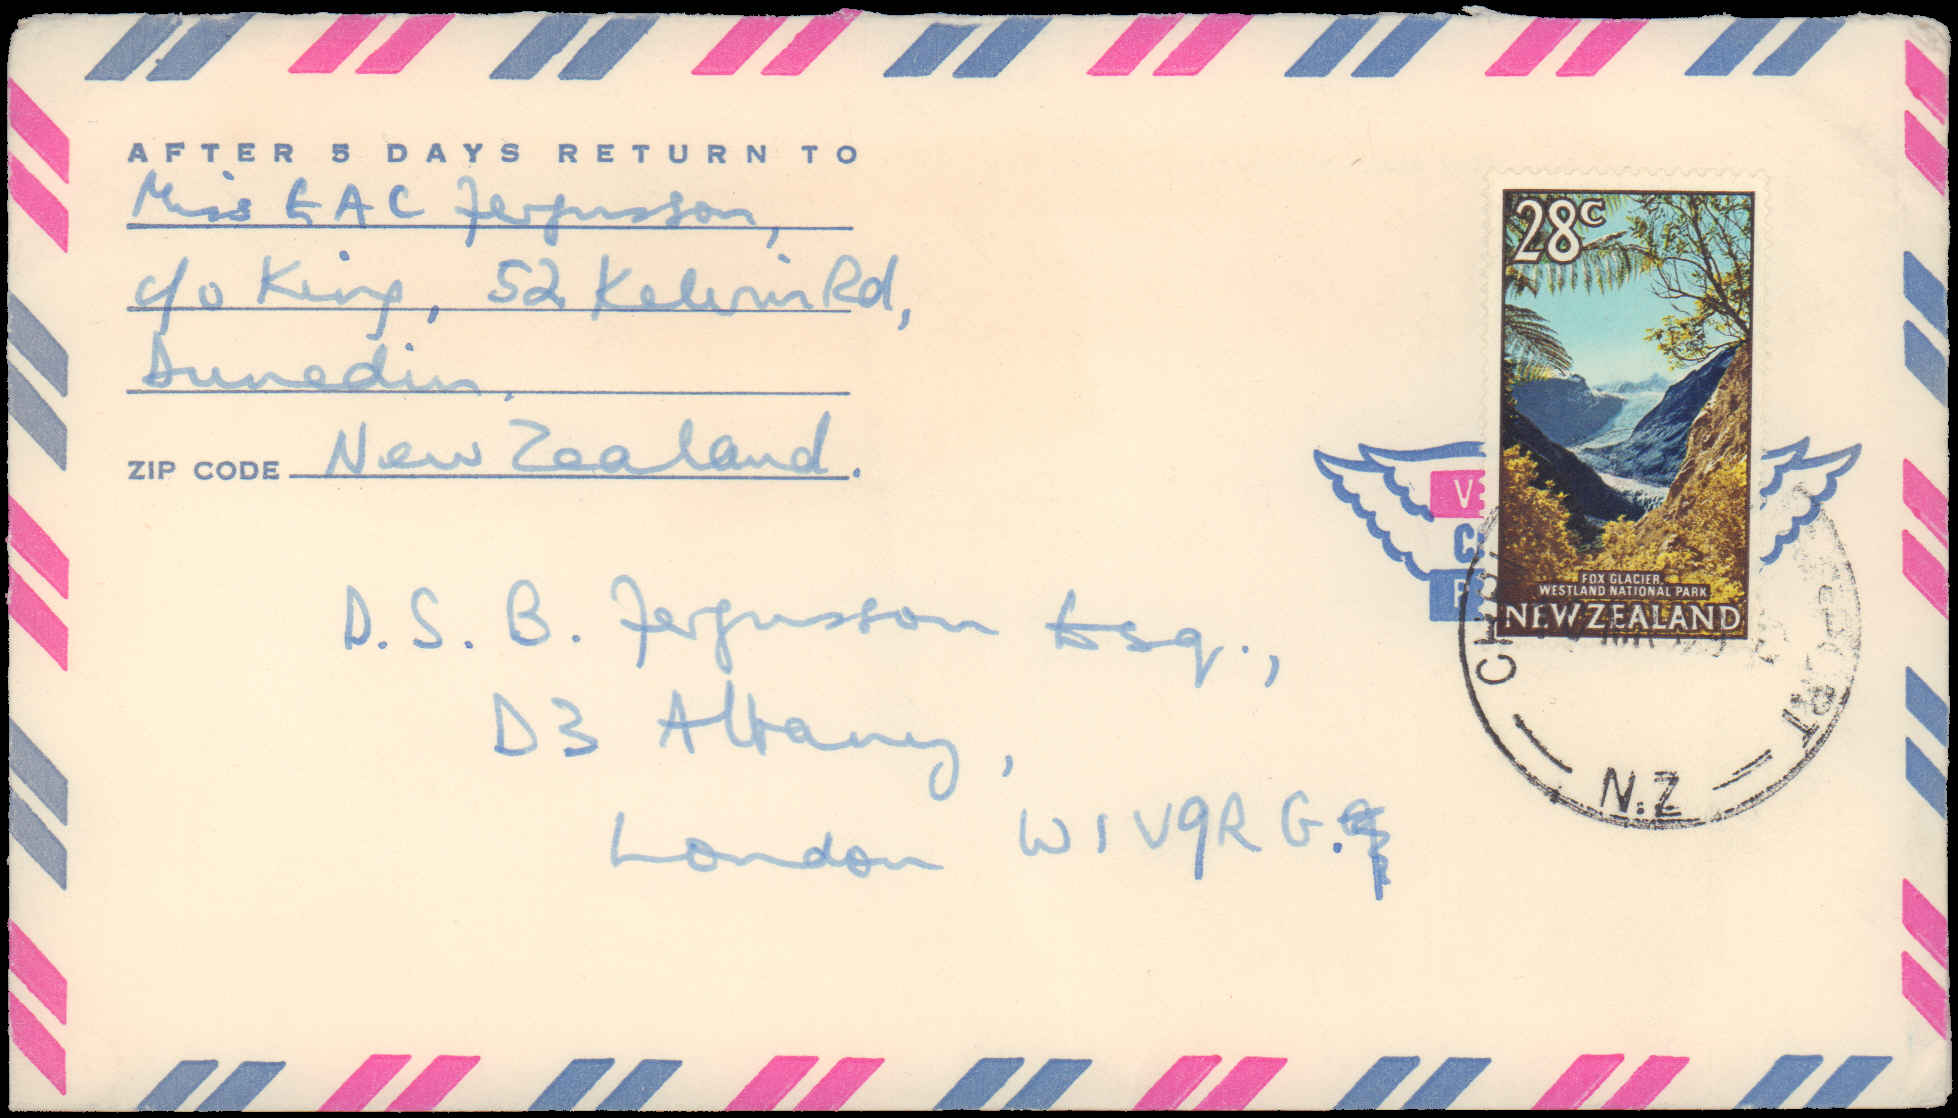 AFTER 5 DAYS RETURN TO
Miss E A C Fergusson,
c/o King, 52 Kelvin Rd,
Dunedin,
ZIP CODE New Zealand.
28c
FOX GLACIER,
WESTLAND NATIONAL PARK
NEW ZEALAND
N.Z
D. S. B. Fergusson Esq.,
D3 Albany,
London W1V9RG.